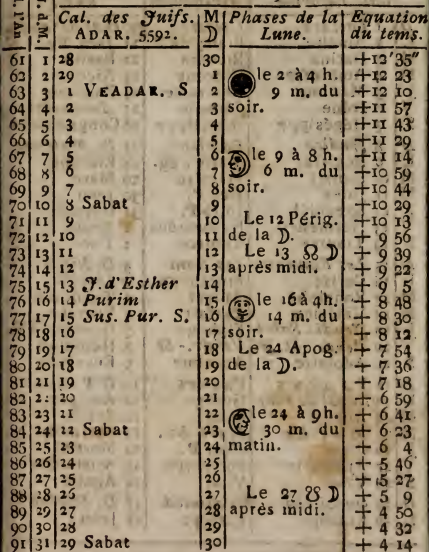 l'An d. M. Cal. des Juifs. M Phases de la Equation
ADAR. 5592. ☽ Lune. du tems.
61 1 28 30 +12'35"
62 2 29 1 le 2 à 4 h. +12 23
63 3 1 VEADAR. S 2 9 m. du +12 10
64 4 2 3 soir. +11 57
65 5 3 4 +11 43
66 6 4 5 +11 29
67 7 5 6 le 9 à 8 h. +11 14
68 8 6 7 6 m. du +10 59
69 9 7 8 soir. +10 44
70 10 8 Sabat 9 +10 29
71 11 9 10 Le 12 Périg. +10 13
72 12 10 11 de la ☽. + 9 56
73 13 11 12 Le 13 ☊ ☽ + 9 39
74 14 12 13 après midi. + 9 22
75 15 13 J. d'Esther 14 + 9 5
76 16 14 Purim 15 le 16 à 4h. + 8 48
77 17 15 Sus. Pur. S. 16 14 m. du + 8 30
78 18 16 17 soir. + 8 12
79 19 17 18 Le 24 Apog. + 7 54
80 20 18 19 de la ☽. + 7 36
81 21 19 20 + 7 18
82 2: 20 21 + 6 59
83 23 21 22 le 24 à 9h. + 6 41
84 24 22 Sabat 23 30 m. du + 6 23
85 25 23 24 matin. + 6 4
86 26 24 25 + 5 46
87 27 25 26 + 5 27
88 28 26 27 Le 27 ☋ ☽ + 5 9
89 29 27 28 après midi. + 4 50
90 30 28 29 + 4 32
91 31 29 Sabat 30 + 4 14